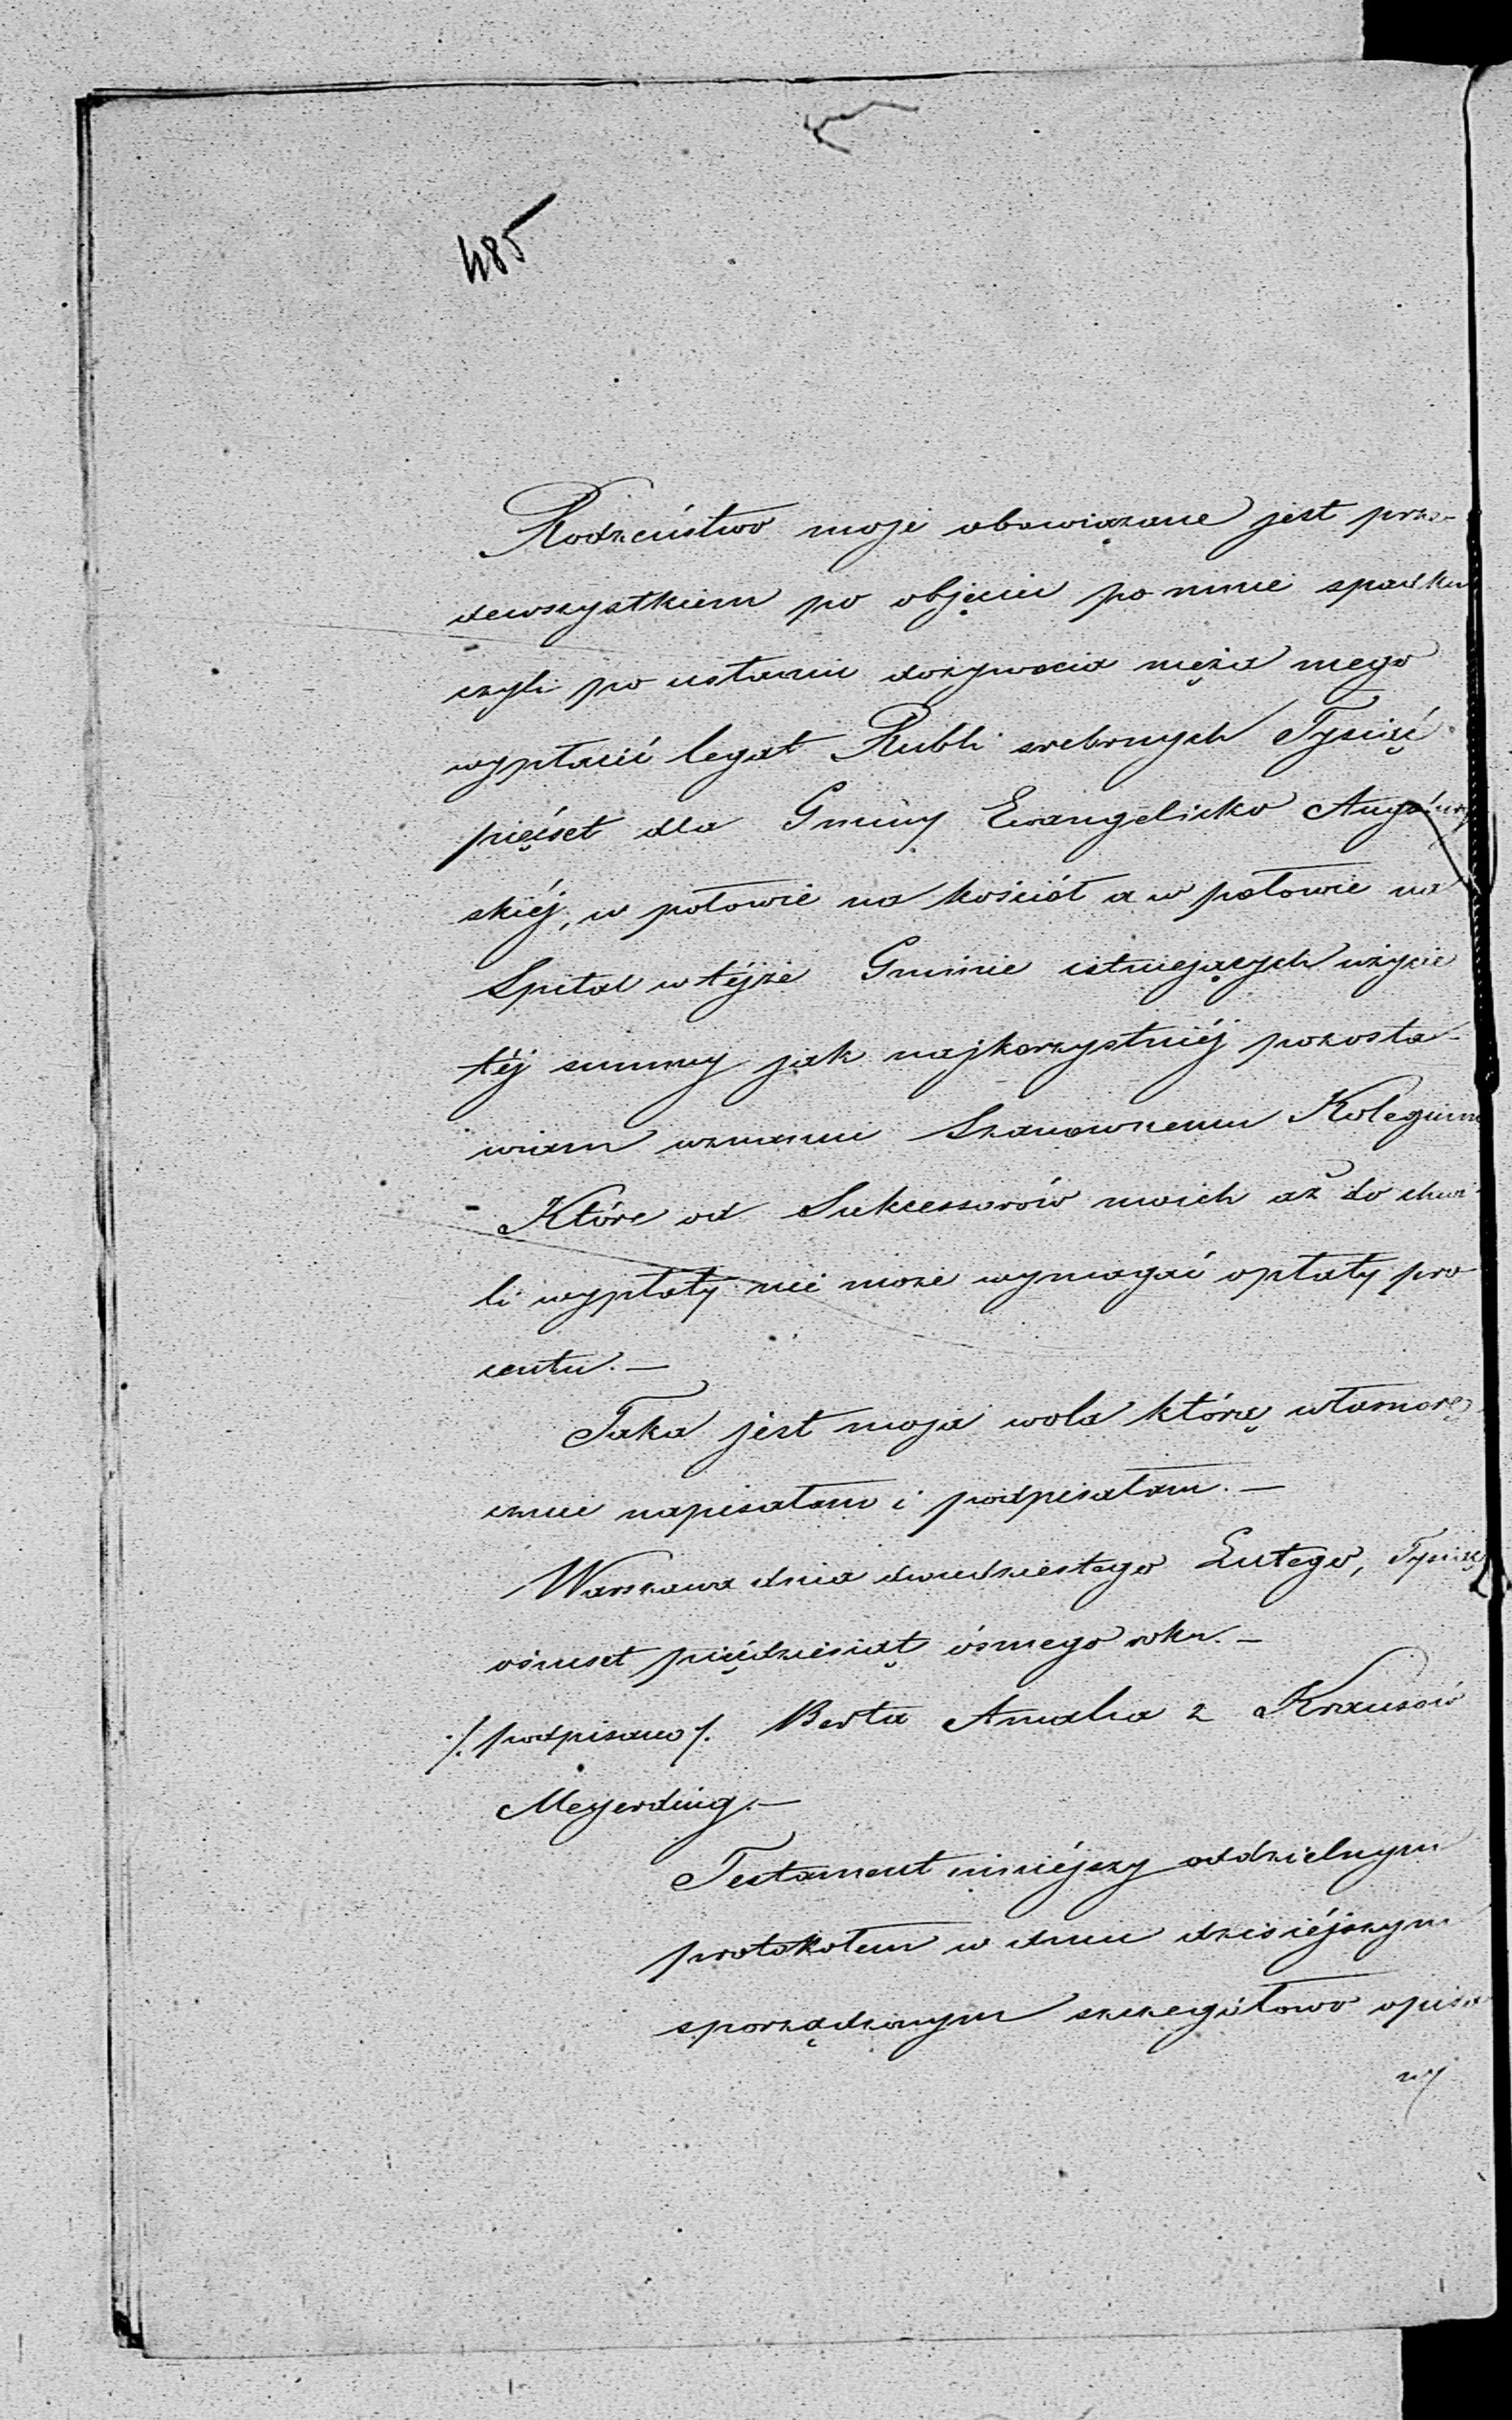 485
Rodzeństwo moje obowiązane jest prze-
dewszystkiem po objęciu po mnie spadku
czyli po ustaniu dożywocia męża mego
wypłacić legat Rubli srebrnych Tysiąć
pięćset dla Gminy Ewangelicko Augsburg
skiéj, w połowie na kościół a w połowie na
Szpital w téjże Gminie istniejących użycie
téj summy jak najkorzystniéj pozosta-
wiam uznaniu Szanownemu Kolegium
Które od Sukcessorów moich aż do chwi-
li wypłaty nie może wymagać opłaty pro
centu.—
Taka jest moja wola którą własnorę
cznie napisałam i podpisałam.—
Warszawa dnia dwudziestego Lutego, Tysiąc
ośmset pięćdziesiąt ósmego roku.—
/. podpisano /. Berta Amalia z Krausów
Meyerding.—
Testament niniéjszy oddzielnym
protokołem w dniu dzisiéjszym
sporządzonym szczegółowo opisa
ny